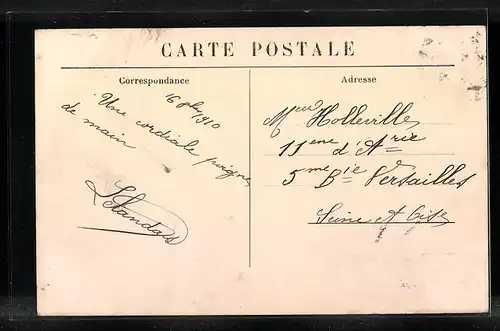 CARTE POSTALE
Correspondance
Adresse
16 1910
Une cordiale poignée
de main
Mr Holleville
11eme d'Arie
5me Bie Versailles
Seine et Oise